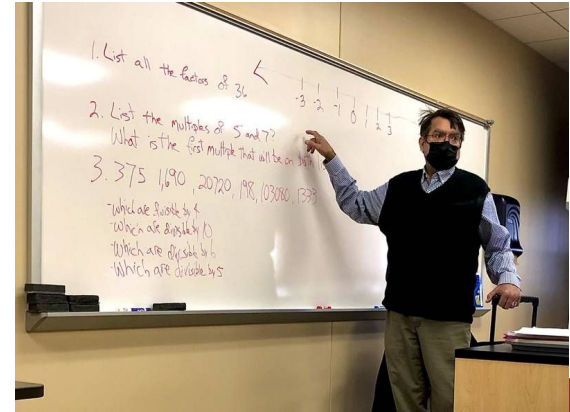 1. List all the factors of 36
-3 -2 -1 0 1 2 3
2. List the multiples of 5 and 7?
What is the first multiple that will be on both
3. 375 1,690, 20720, 198, 103080, 1333
-which are divisible by 4
-which are divisible by 10
-which are divisible by 6
-which are divisible by 5